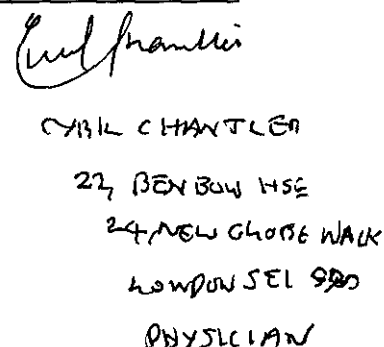 Cyril Chantler
CYRIL CHANTLER
22, BENBOW HSE
24, NEW GLOBE WALK
LONDON SE1
PHYSICIAN